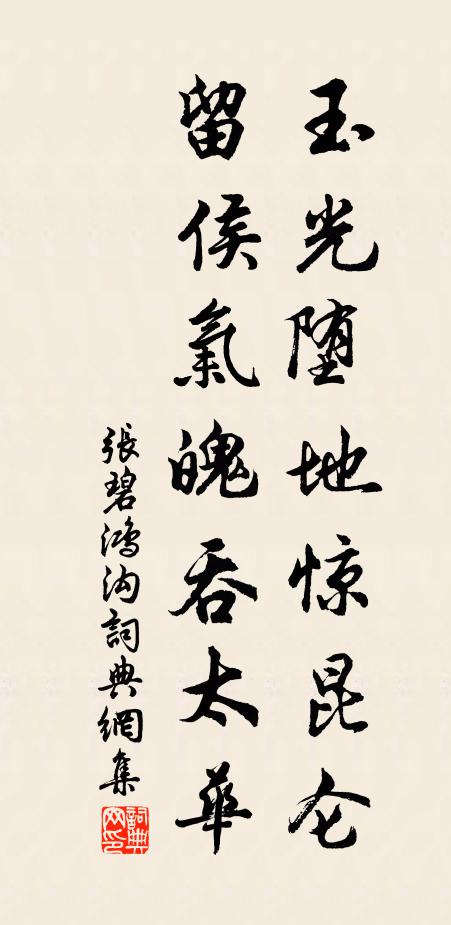 玉光堕地惊昆仑
留侯氣魄吞太華
張碧鴻沟詞典網集
詞典网印